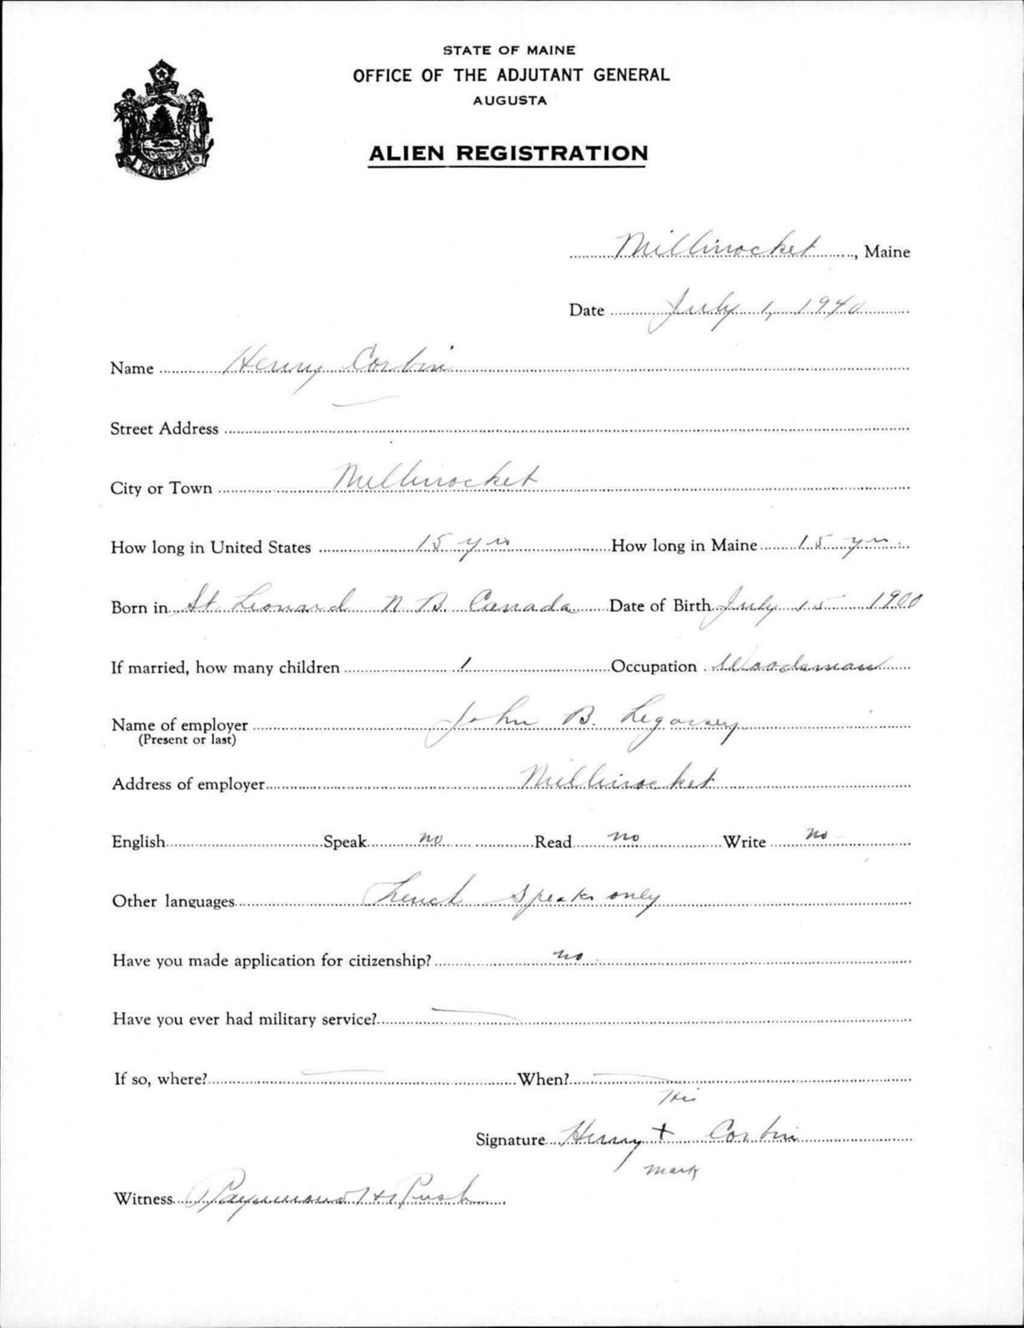 STATE OF MAINE
OFFICE OF THE ADJUTANT GENERAL
AUGUSTA
ALIEN REGISTRATION
Millinocket, Maine
Date July 1, 1940
Name Henry Corbin
Street Address
City or Town Millinocket
How long in United States 15 yrs How long in Maine 15 yrs
Born in St. Leonard N B. Canada Date of Birth July 15 1900
If married, how many children 1 Occupation Woodsman
Name of employer John B. Legassey
(Present or last)
Address of employer Millinocket
English Speak no Read no Write no
Other languages French Speaks only
Have you made application for citizenship? no
Have you ever had military service?
If so, where? When?
His
Signature Henry + Corbin
mark
Witness Raymond H